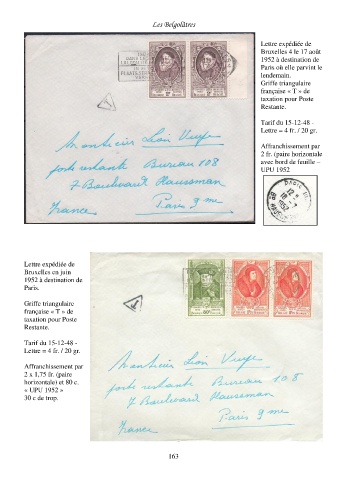 Les Belgolâtres
Lettre expédiée de
Bruxelles 4 le 17 août
1952 à destination de
Paris où elle parvint le
lendemain.
Griffe triangulaire
française « T » de
taxation pour Poste
Restante.
Tarif du 15-12-48 -
Lettre = 4 fr. / 20 gr.
Affranchissement par
2 fr. (paire horizontale
avec bord de feuille –
UPU 1952
T
Monsieur Léon
poste restante Bureau 108
7 Boulevard Haussman
Paris 9me
France
Lettre expédiée de
Bruxelles en juin
1952 à destination de
Paris.
Griffe triangulaire
française « T » de
taxation pour Poste
Restante.
Tarif du 15-12-48 -
Lettre = 4 fr. / 20 gr.
Affranchissement par
2 x 1,75 fr. (paire
horizontale) et 80 c.
« UPU 1952 »
30 c de trop.
T
Monsieur Léon
poste restante Bureau 108
7 Boulevard Haussman
Paris 9me
France
163